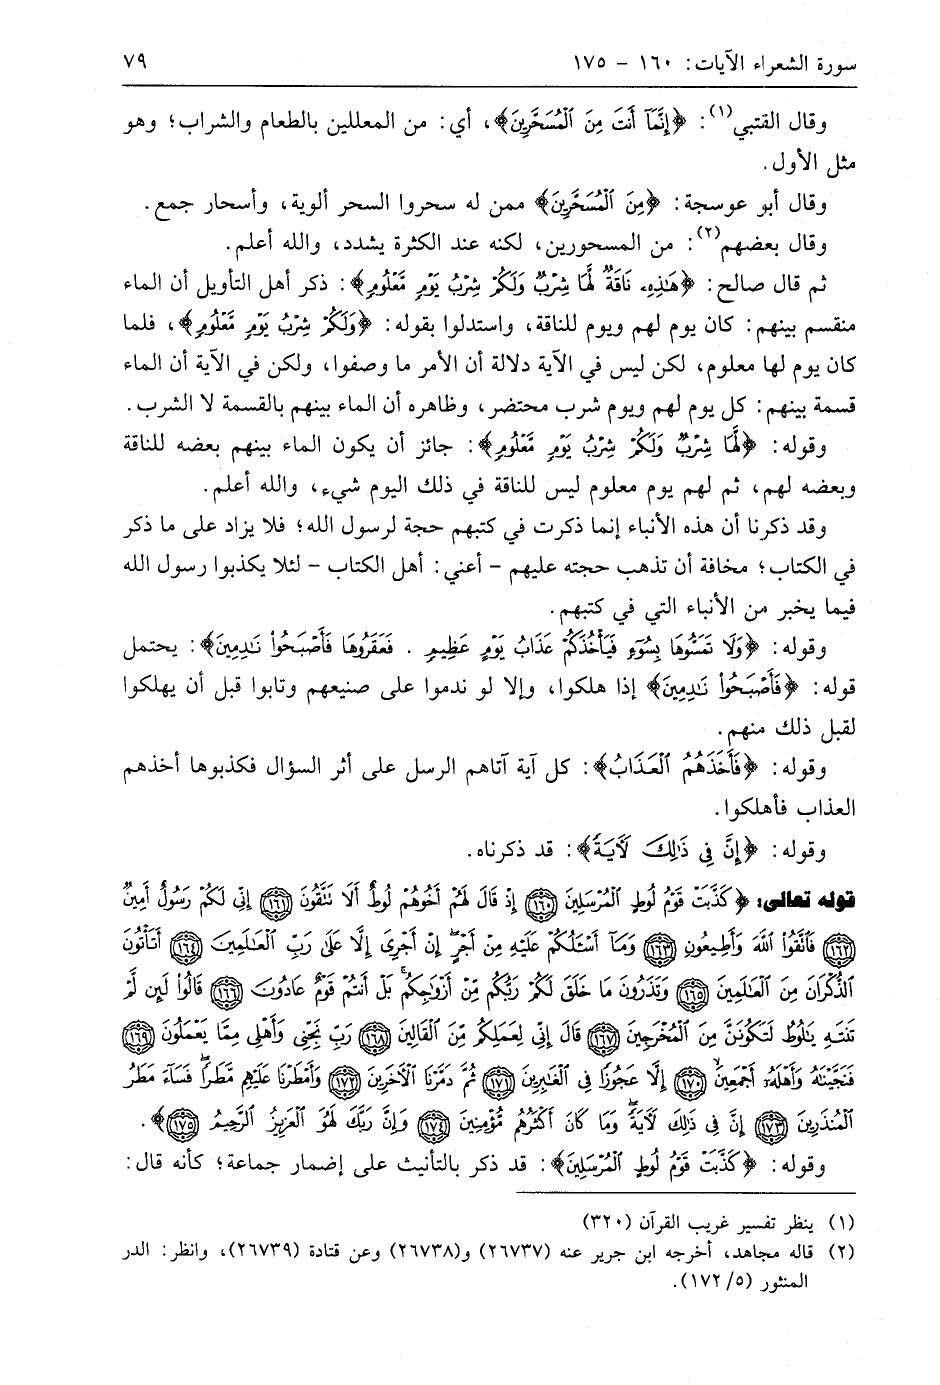 سورة الشعراء الآيات: ١٦٠ - ١٧٥ ٧٩
وقال القتبي(١): ﴿إِنَّمَآ أَنتَ مِنَ ٱلْمُسَحَّرِينَ﴾، أي: من المعللين بالطعام والشراب؛ وهو
مثل الأول.
وقال أبو عوسجة: ﴿مِنَ ٱلْمُسَحَّرِينَ﴾ ممن له سحروا السحر ألوية، وأسحار جمع.
وقال بعضهم(٢): من المسحورين، لكنه عند الكثرة يشدد، والله أعلم.
ثم قال صالح: ﴿هَٰذِهِۦ نَاقَةٌ لَّهَا شِرْبٌ وَلَكُمْ شِرْبُ يَوْمٍ مَّعْلُومٍ﴾: ذكر أهل التأويل أن الماء
منقسم بينهم: كان يوم لهم ويوم للناقة، واستدلوا بقوله: ﴿وَلَكُمْ شِرْبُ يَوْمٍ مَّعْلُومٍ﴾، فلما
كان يوم لها معلوم، لكن ليس في الآية دلالة أن الأمر ما وصفوا، ولكن في الآية أن الماء
قسمة بينهم: كل يوم لهم ويوم شرب محتضر، وظاهره أن الماء بينهم بالقسمة لا الشرب.
وقوله: ﴿لَّهَا شِرْبٌ وَلَكُمْ شِرْبُ يَوْمٍ مَّعْلُومٍ﴾: جائز أن يكون الماء بينهم بعضه للناقة
وبعضه لهم، ثم لهم يوم معلوم ليس للناقة في ذلك اليوم شيء، والله أعلم.
وقد ذكرنا أن هذه الأنباء إنما ذكرت في كتبهم حجة لرسول الله؛ فلا يزاد على ما ذكر
في الكتاب؛ مخافة أن تذهب حجته عليهم - أعني: أهل الكتاب - لئلا يكذبوا رسول الله
فيما يخبر من الأنباء التي في كتبهم.
وقوله: ﴿وَلَا تَمَسُّوهَا بِسُوٓءٍ فَيَأْخُذَكُمْ عَذَابُ يَوْمٍ عَظِيمٍ . فَعَقَرُوهَا فَأَصْبَحُوا۟ نَٰدِمِينَ﴾: يحتمل
قوله: ﴿فَأَصْبَحُوا۟ نَٰدِمِينَ﴾ إذا هلكوا، وإلا لو ندموا على صنيعهم وتابوا قبل أن يهلكوا
لقبل ذلك منهم.
وقوله: ﴿فَأَخَذَهُمُ ٱلْعَذَابُ﴾: كل آية آتاهم الرسل على أثر السؤال فكذبوها أخذهم
العذاب فأهلكوا.
وقوله: ﴿إِنَّ فِى ذَٰلِكَ لَءَايَةً﴾: قد ذكرناه.
قوله تعالى: ﴿كَذَّبَتْ قَوْمُ لُوطٍ ٱلْمُرْسَلِينَ ١٦٠ إِذْ قَالَ لَهُمْ أَخُوهُمْ لُوطٌ أَلَا تَتَّقُونَ ١٦١ إِنِّى لَكُمْ رَسُولٌ أَمِينٌ
١٦٢ فَٱتَّقُوا۟ ٱللَّهَ وَأَطِيعُونِ ١٦٣ وَمَآ أَسْـَٔلُكُمْ عَلَيْهِ مِنْ أَجْرٍ إِنْ أَجْرِىَ إِلَّا عَلَىٰ رَبِّ ٱلْعَٰلَمِينَ ١٦٤ أَتَأْتُونَ
ٱلذُّكْرَانَ مِنَ ٱلْعَٰلَمِينَ ١٦٥ وَتَذَرُونَ مَا خَلَقَ لَكُمْ رَبُّكُم مِّنْ أَزْوَٰجِكُم بَلْ أَنتُمْ قَوْمٌ عَادُونَ ١٦٦ قَالُوا۟ لَئِن لَّمْ
تَنتَهِ يَٰلُوطُ لَتَكُونَنَّ مِنَ ٱلْمُخْرَجِينَ ١٦٧ قَالَ إِنِّى لِعَمَلِكُم مِّنَ ٱلْقَالِينَ ١٦٨ رَبِّ نَجِّنِى وَأَهْلِى مِمَّا يَعْمَلُونَ ١٦٩
فَنَجَّيْنَٰهُ وَأَهْلَهُۥٓ أَجْمَعِينَ ١٧٠ إِلَّا عَجُوزًا فِى ٱلْغَٰبِرِينَ ١٧١ ثُمَّ دَمَّرْنَا ٱلْءَاخَرِينَ ١٧٢ وَأَمْطَرْنَا عَلَيْهِم مَّطَرًا فَسَآءَ مَطَرُ
ٱلْمُنذَرِينَ ١٧٣ إِنَّ فِى ذَٰلِكَ لَءَايَةً وَمَا كَانَ أَكْثَرُهُم مُّؤْمِنِينَ ١٧٤ وَإِنَّ رَبَّكَ لَهُوَ ٱلْعَزِيزُ ٱلرَّحِيمُ ١٧٥﴾.
وقوله: ﴿كَذَّبَتْ قَوْمُ لُوطٍ ٱلْمُرْسَلِينَ﴾: قد ذكر بالتأنيث على إضمار جماعة؛ كأنه قال:
(١) ينظر تفسير غريب القرآن (٣٢٠)
(٢) قاله مجاهد، أخرجه ابن جرير عنه (٢٦٧٣٧) و(٢٦٧٣٨) وعن قتادة (٢٦٧٣٩)، وانظر: الدر
المنثور (٥/ ١٧٢).